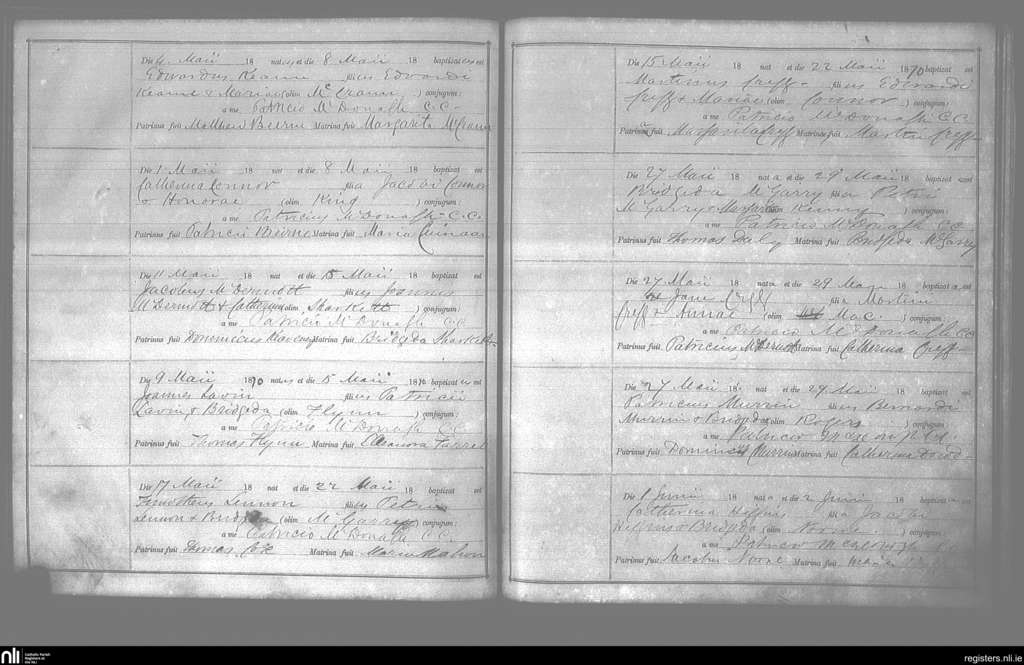 Die 4 Maii 18 natus et die 8 Maii 18 baptizatus est
Edwardus Keanne filius Edvardi
Keanne & Mariae (olim McCrann ) conjugum:
a me Patricio McDonagh C.C.
Patrinus fuit Matthew Beirne Matrina fuit Margarita McCrann
Die 1 Maii 18 nat et die 8 Maii 18 baptizat est
Catherina Connor filia Jacobi Connor
& Honorae (olim King ) conjugum:
a me Patricius McDonagh C.C.
Patrinus fuit Patricii Beirne Matrina fuit Maria
Die 11 Maii 18 nat et die 15 Maii 18 baptizat est
Jacobus McDermott filius Joannis
McDermott & Catherina (olim Sharkett ) conjugum:
a me Patricio McDonagh C.C.
Patrinus fuit Dominicus Matrina fuit Bridgida Sharkett
Die 9 Maii 1870 natus et die 15 Maii 1870 baptizatus est
Joannes Lavin filius Patricii
Lavin & Bridgida (olim Flynn ) conjugum:
a me Patricio McDonagh CC
Patrinus fuit Thomas Flynn Matrina fuit Eleanora
Die 17 Maii 18 nat et die 22 Maii 18 baptizat est
Timotheus Lennon filius Petri
Lennon & Bridgida (olim McGarry conjugum:
a me Patricio McDonagh C.C.
Patrinus fuit Thomas Cox Matrina fuit Maria Mahon
Die 15 Maii 18 nat et die 22 Maii 1870 baptizat est
Martinus Creff filius Edwardi
Creff & Mariae (olim Connor ) conjugum:
a me Patricio McDonagh C.C.
Patrinus fuit Margarita Creff Matrina fuit Martin Creff
Die 27 Maii 18 nata et die 29 Maii 18 baptizat est
Bridgida McGarry filia Petri
McGarry & Margarita (olim Kenny ) conjugum:
a me Patricio McDonagh CC
Patrinus fuit Thomas Daly Matrina fuit Bridgida McGarry
Die 27 Maii 18 nata et die 29 Maii 18 baptizata est
Jane Creff filia Martini
Creff & Annae (olim Mac. ) conjugum:
a me Patricio McDonagh CC
Patrinus fuit Patricius McDermott Matrina fuit Catherina Creff
Die 27 Maii 18 nat et die 29 Maii 18 baptizat est
Patricius Murrin filius Bernardi
Murrin & Bridgida (olim Rogers ) conjugum:
a me Patricio
Patrinus fuit Dominick Murrin Matrina fuit Catherina
Die 1 Junii 18 nata et die 2 Junii 18 baptizata est
Catherina filia Jacobi
& Bridgida (olim Noone ) conjugum:
a me Patricio
Patrinus fuit Jacobus Noone Matrina fuit
nli
Catholic Parish
Registers at
the NLI
registers.nli.ie